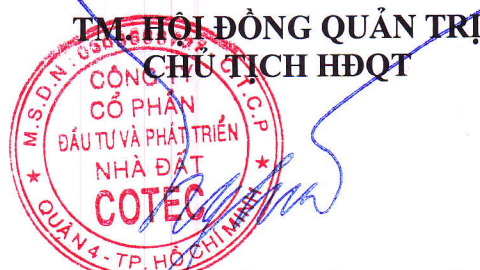 TM. HỘI ĐỒNG QUẢN TRỊ
CHỦ TỊCH HĐQT
CÔNG TY
CỔ PHẦN
ĐẦU TƯ VÀ PHÁT TRIỂN
NHÀ ĐẤT
COTEC
M.S.D.N:
C.T.C.P
QUẬN 4 - TP. HỒ CHÍ MINH